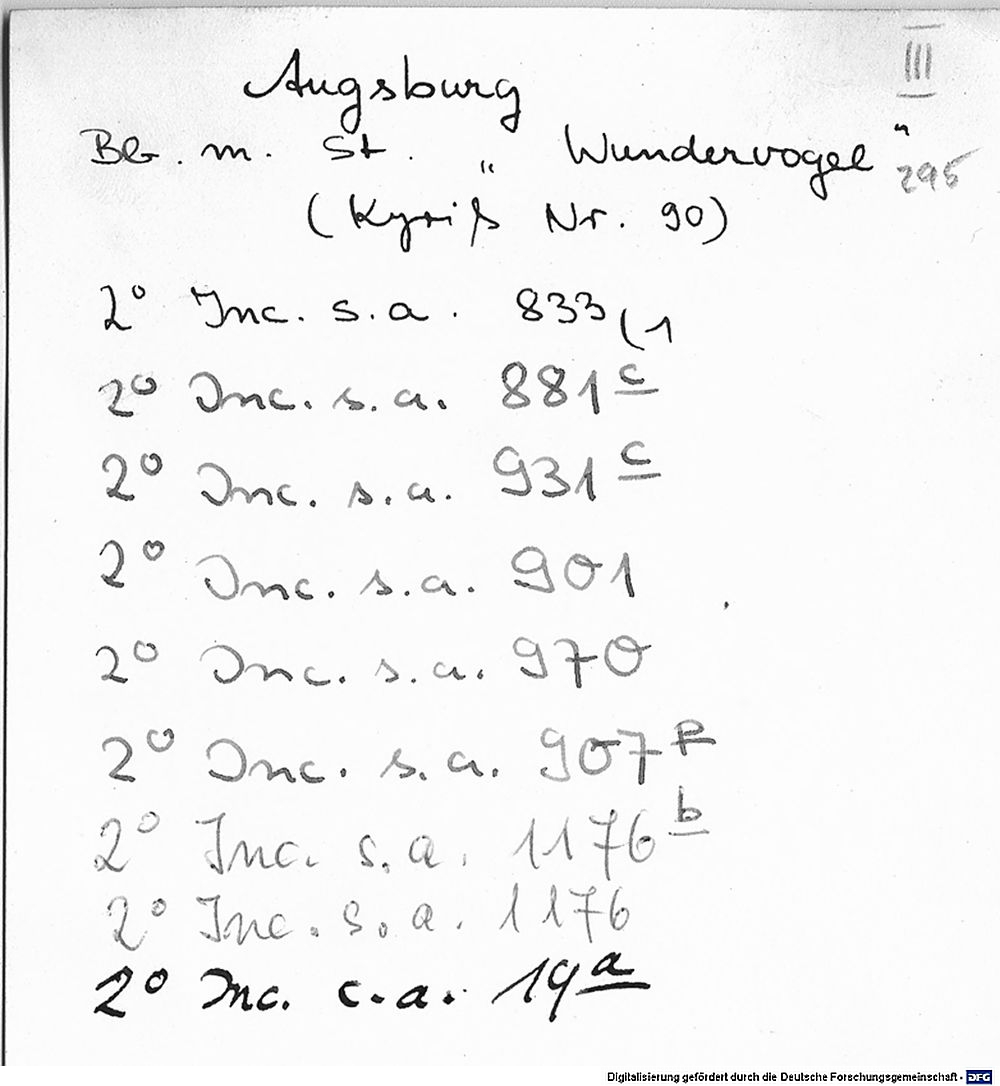 III
Augsburg
Bb. m. St. „Wundervogel“ 295
(Kyriß Nr. 90)
2° Inc. s.a. 833(1
2° Inc. s.a. 881 c
2° Inc. s.a. 931 c
2° Inc. s.a. 901
2° Inc. s.a. 970
2° Inc. s.a. 907 p
2° Inc. s.a. 1176 b
2° Inc. s.a. 1176
2° Inc. c.a. 19 a
Digitalisierung gefördert durch die Deutsche Forschungsgemeinschaft - DFG